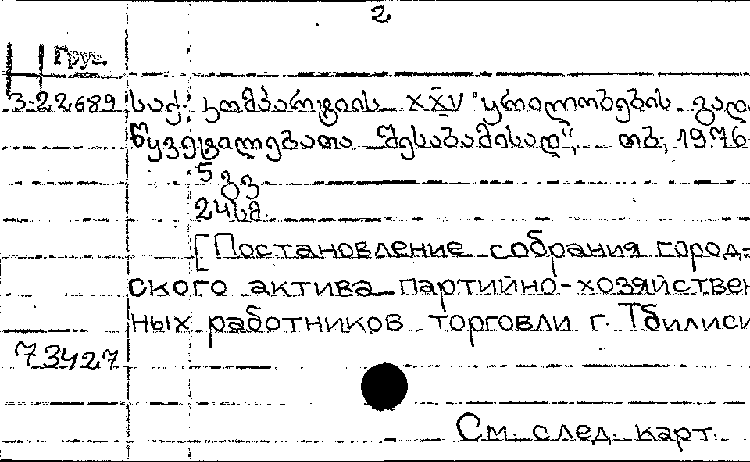 2
Груз.
3-22689 საქ. კომპარტიის XXV ყრილობების გადა
წყვეტილებათა შესაბამისად", თბ, 1976
5 გვ
24სმ.
[Постановление собрания город-
ского актива партийно-хозяйствен
ных работников торговли г. Тбилиси
73427
См. след. карт.